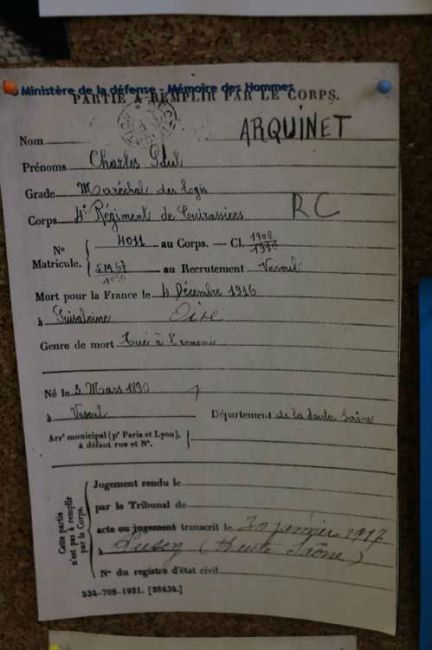 Ministère de la défense - Mémoire des Hommes
PARTIE A REMPLIR PAR LE CORPS.
Nom ARQUINET
Prénoms Charles Paul
Grade Maréchal des logis
Corps 4e Régiment de Cuirassiers RC
N° Matricule. 4011 au Corps. — Cl. 1908 1910
au Recrutement Vesoul
Mort pour la France le 4 Décembre 1916
à Oise
Genre de mort Tué à l'ennemi
Né le 3 Mars 1890
à Vesoul Département de la Haute Saône
Arrt municipal (pr Paris et Lyon),
à défaut rue et N°.
Cette partie n'est pas à remplir par le Corps.
Jugement rendu le
par le Tribunal de
acte ou jugement transcrit le 30 janvier 1917
à (Haute Saône)
N° du registre d'état civil
534-708-1921. [26434.]